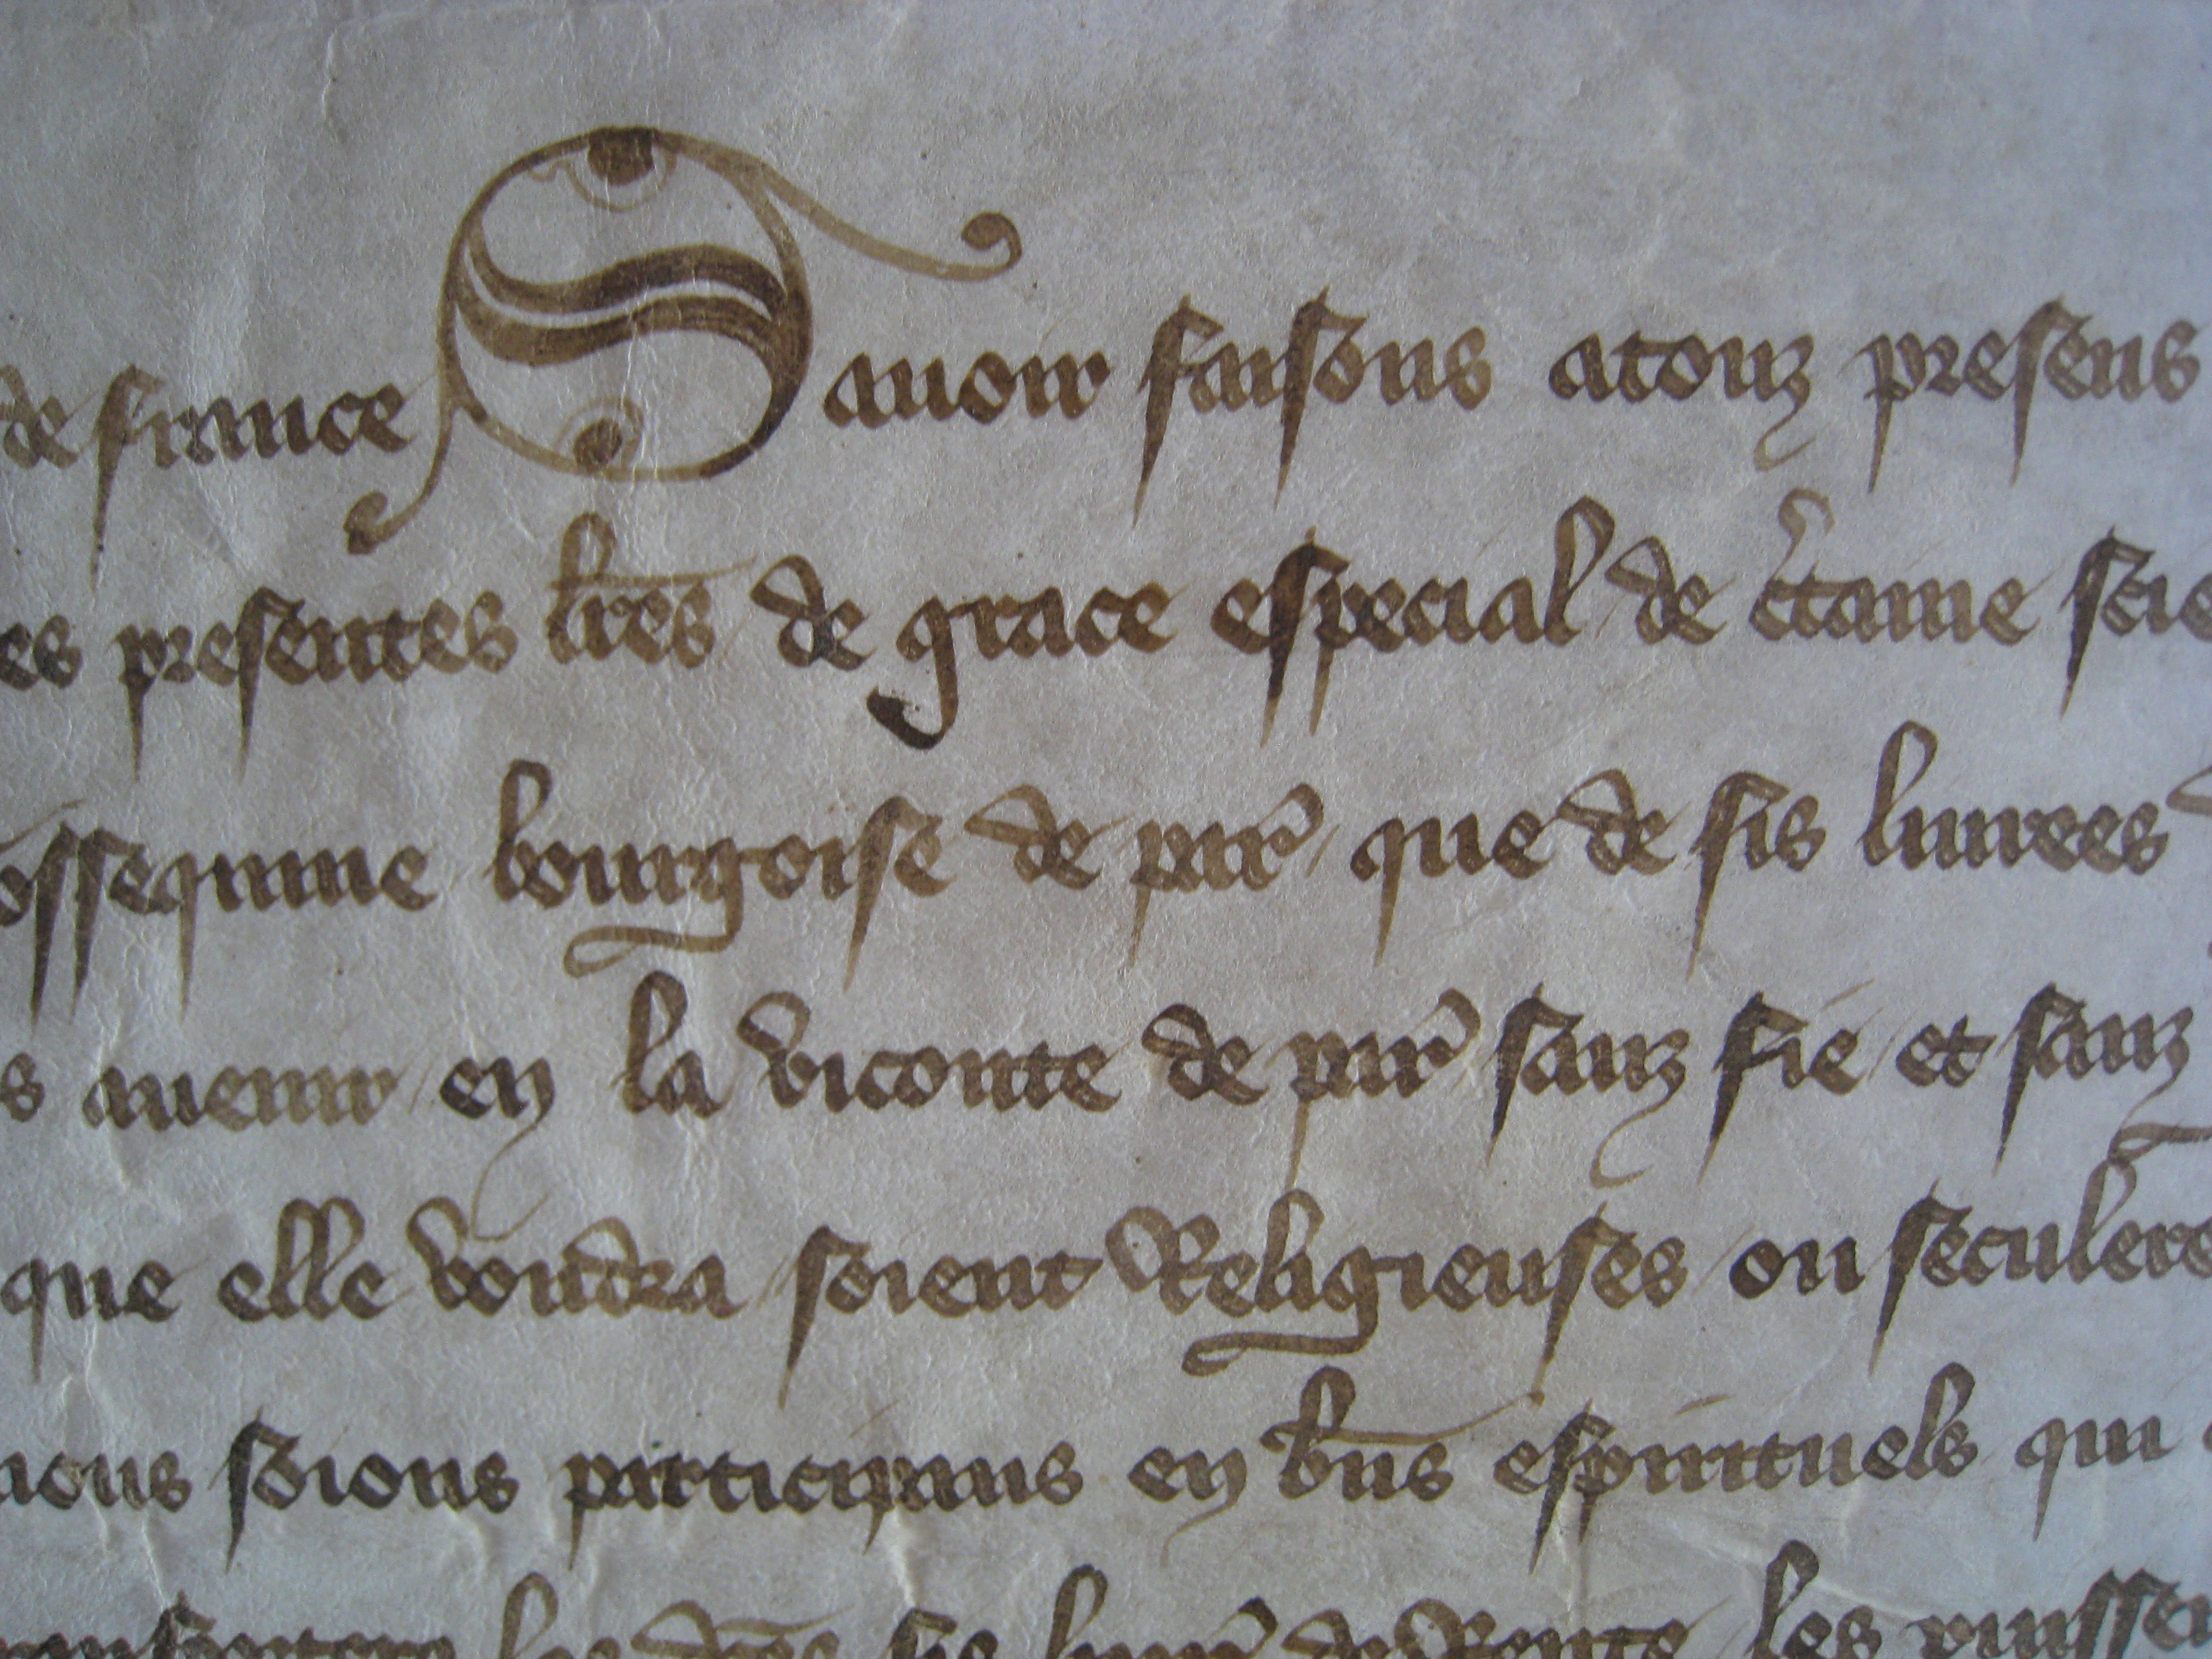 de france Sauoir faisons atouz presens
es presentes lres de grace especial de ctaine scie
ossequine bourgoise de par que de sis liurees
s auenir en la viconte de par sanz fie et sanz
que elle voudra soient Religieuses ou seculere
nous soions participans en bns espirituels qui
les dces sis liur de Rente les puisse